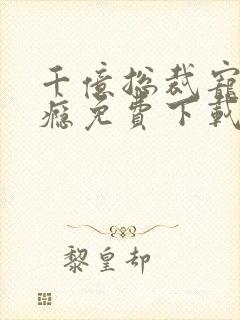 千億总裁宠
瘾免費下載
黎皇却